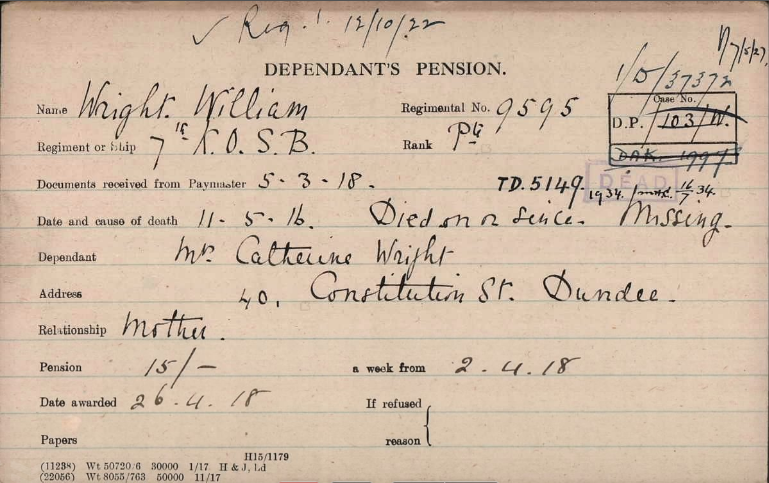 ✓ Reg. 1. 12/10/22
N 7/5/27,
DEPENDANT'S PENSION.
1/D/37372
Name Wright. William Regimental No. 9595
Case No.
D.P. 103/W.
Regiment or Ship 7th K.O.S.B. Rank Pte
Documents received from Paymaster 5-3-18. TD.5149. 1934/ 16/7 34.
DEAD
Date and cause of death 11-5-16. Died on or since. Missing.
Dependant Mrs. Catherine Wright
Address 40, Constitution St. Dundee.
Relationship Mother.
Pension 15/- a week from 2.4.18
Date awarded 26.4.18 If refused
Papers reason
H15/1179
(11238) Wt 50720/6 30000 1/17 H & J, Ld
(22056) Wt 8055/763 50000 11/17